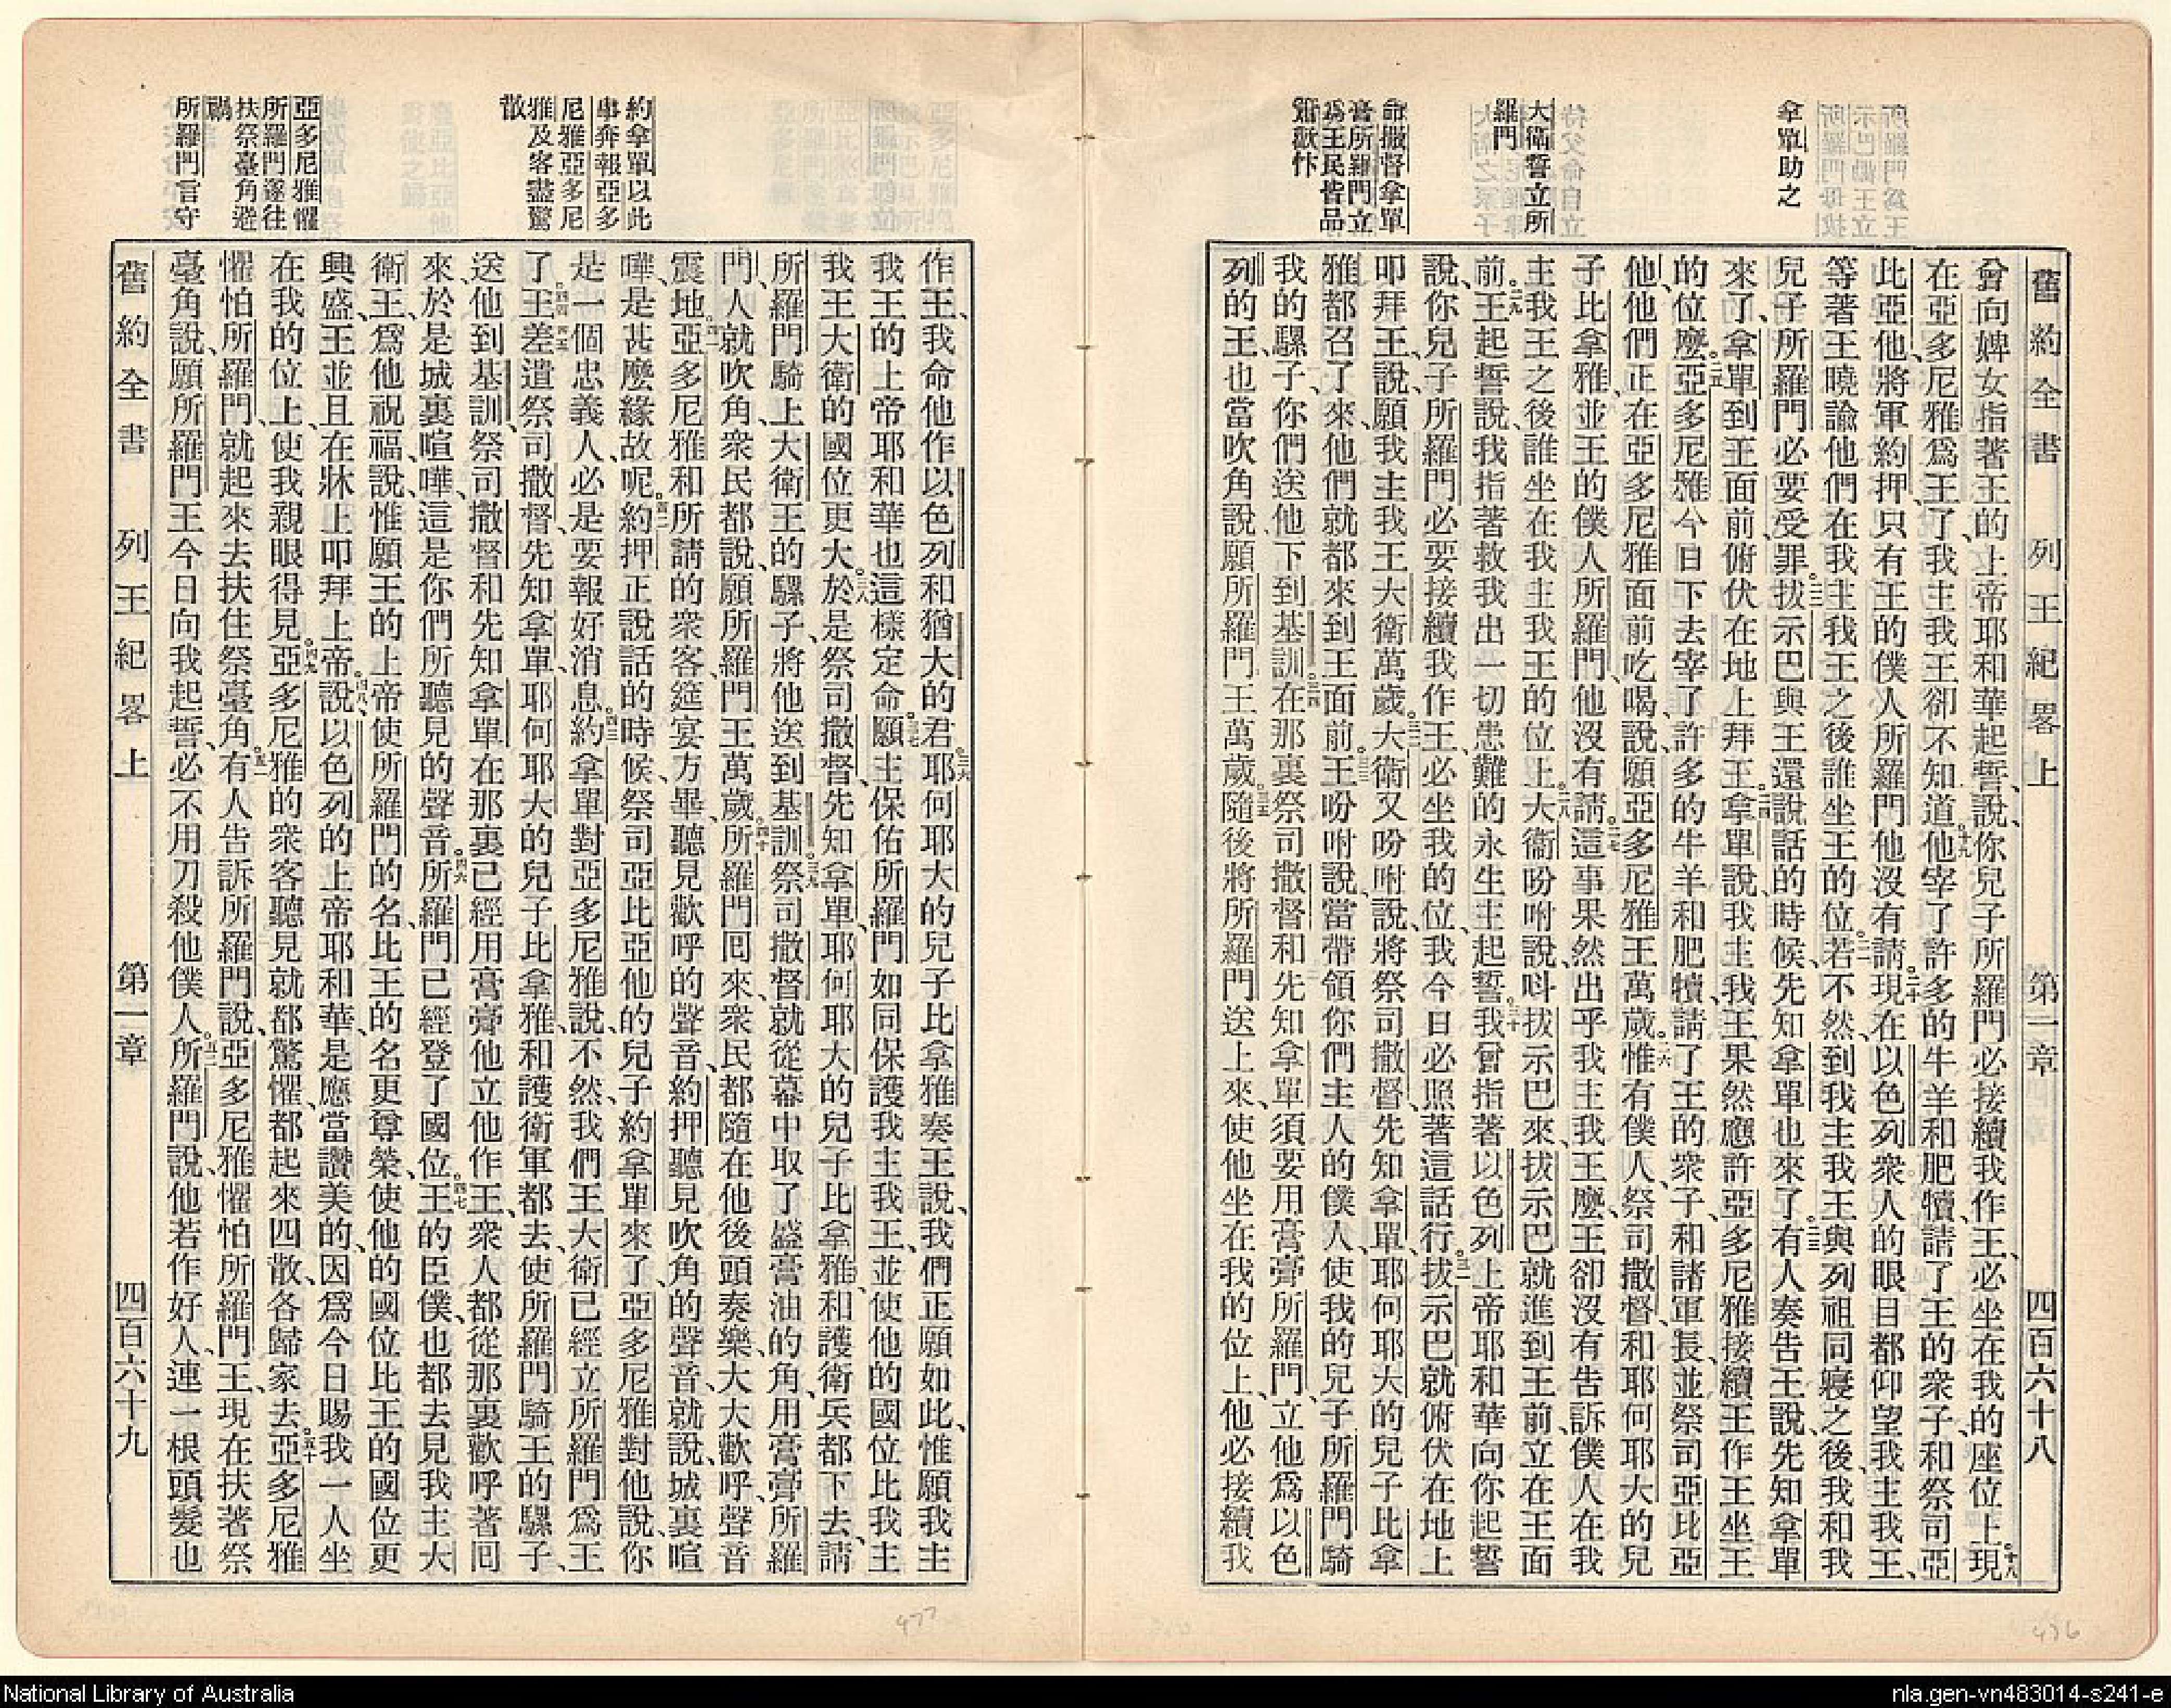 舊約全書 列王紀畧上 第一章 四百六十八
拿單助之
大衛誓立所
羅門
命撒督拿單
膏所羅門立
爲王民皆品
簫歡忭
曾向婢女指著王的上帝耶和華起誓、說、你兒子所羅門必接續我作王、必坐在我的座位上。十八現
在亞多尼雅爲王了、我主我王卻不知道。十九他宰了許多的牛羊和肥犢、請了王的衆子和祭司亞
比亞他、將軍約押、只有王的僕人所羅門他沒有請。二十現在以色列衆人的眼目都仰望我主我王、
等著王曉諭他們、在我主我王之後誰坐王的位。二一若不然、到我主我王與列祖同寢之後、我和我
兒子所羅門必要受罪。二二拔示巴與王還說話的時候、先知拿單也來了。二三有人奏告王說、先知拿單
來了、拿單到王面前、俯伏在地上拜王。二四拿單說、我主我王果然應許亞多尼雅接續王作王坐王
的位麼。二五亞多尼雅今日下去、宰了許多的牛羊和肥犢、請了王的衆子、和諸軍長、並祭司亞比亞
他、他們正在亞多尼雅面前吃喝、說、願亞多尼雅王萬歲。二六惟有僕人、祭司撒督、和耶何耶大的兒
子比拿雅、並王的僕人所羅門、他沒有請。二七這事果然出乎我主我王麼、王卻沒有告訴僕人在我
主我王之後、誰坐在我主我王的位上。二八大衞吩咐說、呌拔示巴來、拔示巴就進到王前、立在王面
前。二九王起誓說、我指著救我出一切患難的永生主起誓。三十我曾指著以色列上帝耶和華向你起誓
說、你兒子所羅門必要接續我作王、必坐我的位、我今日必照著這話行。三一拔示巴就俯伏在地上
叩拜王、說、願我主我王大衛萬歲。三二大衛又吩咐說、將祭司撒督、先知拿單、耶何耶大的兒子比拿
雅都召了來、他們就都來到王面前。三三王吩咐說、當帶領你們主人的僕人、使我的兒子所羅門騎
我的騾子、你們送他下到基訓。三四在那裏祭司撒督和先知拿單、須要用膏膏所羅門、立他爲以色
列的王、也當吹角說、願所羅門王萬歲。三五隨後將所羅門送上來、使他坐在我的位上、他必接續我
約拿單以此
事奔報亞多
尼雅亞多尼
雅及客盡驚
散
亞多尼雅懼
所羅門遂往
扶祭臺角避
禍
所羅門言守
作王、我命他作以色列和猶大的君。三六耶何耶大的兒子比拿雅奏王說、我們正願如此、惟願我主
我王的上帝耶和華也這樣定命。三七願主保佑所羅門、如同保護我主我王、並使他的國位比我主
我王大衛的國位更大。三八於是祭司撒督、先知拿單、耶何耶大的兒子比拿雅、和護衛兵都下去、請
所羅門騎上大衛王的騾子、將他送到基訓。三九祭司撒督就從幕中取了盛膏油的角、用膏膏所羅
門、人就吹角、衆民都說、願所羅門王萬歲。四十所羅門囘來、衆民都隨在他後頭奏樂、大大歡呼、聲音
震地。四一亞多尼雅和所請的衆客、筵宴方畢、聽見歡呼的聲音、約押聽見吹角的聲音、就說、城裏喧
嘩、是甚麼緣故呢。四二約押正說話的時候、祭司亞比亞他的兒子約拿單來了、亞多尼雅對他說、你
是一個忠義人、必是要報好消息。四三約拿單對亞多尼雅說、不然、我們王大衛已經立所羅門爲王
了。四四四五王差遣祭司撒督、先知拿單、耶何耶大的兒子比拿雅和護衛軍都去、使所羅門騎王的騾子、
送他到基訓、祭司撒督和先知拿單在那裏已經用膏膏他、立他作王、衆人都從那裏歡呼著囘
來、於是城裏喧嘩、這是你們所聽見的聲音。四六所羅門已經登了國位。四七王的臣僕、也都去見我主大
衛王、爲他祝福、說、惟願王的上帝使所羅門的名、比王的名更尊榮、使他的國位比王的國位更
興盛、王並且在牀上叩拜上帝。四八說、以色列的上帝耶和華、是應當讚美的、因爲今日賜我一人坐
在我的位上、使我親眼得見。四九亞多尼雅的衆客聽見就都驚懼、都起來四散、各歸家去。五十亞多尼雅
懼怕所羅門、就起來去扶住祭臺角。五一有人告訴所羅門說、亞多尼雅懼怕所羅門王、現在扶著祭
臺角說、願所羅門王今日向我起誓、必不用刀殺他僕人。五二所羅門說、他若作好人、連一根頭髮也
舊約全書 列王紀畧上 第一章 四百六十九
477
476
National Library of Australia
nla.gen-vn483014-s241-e